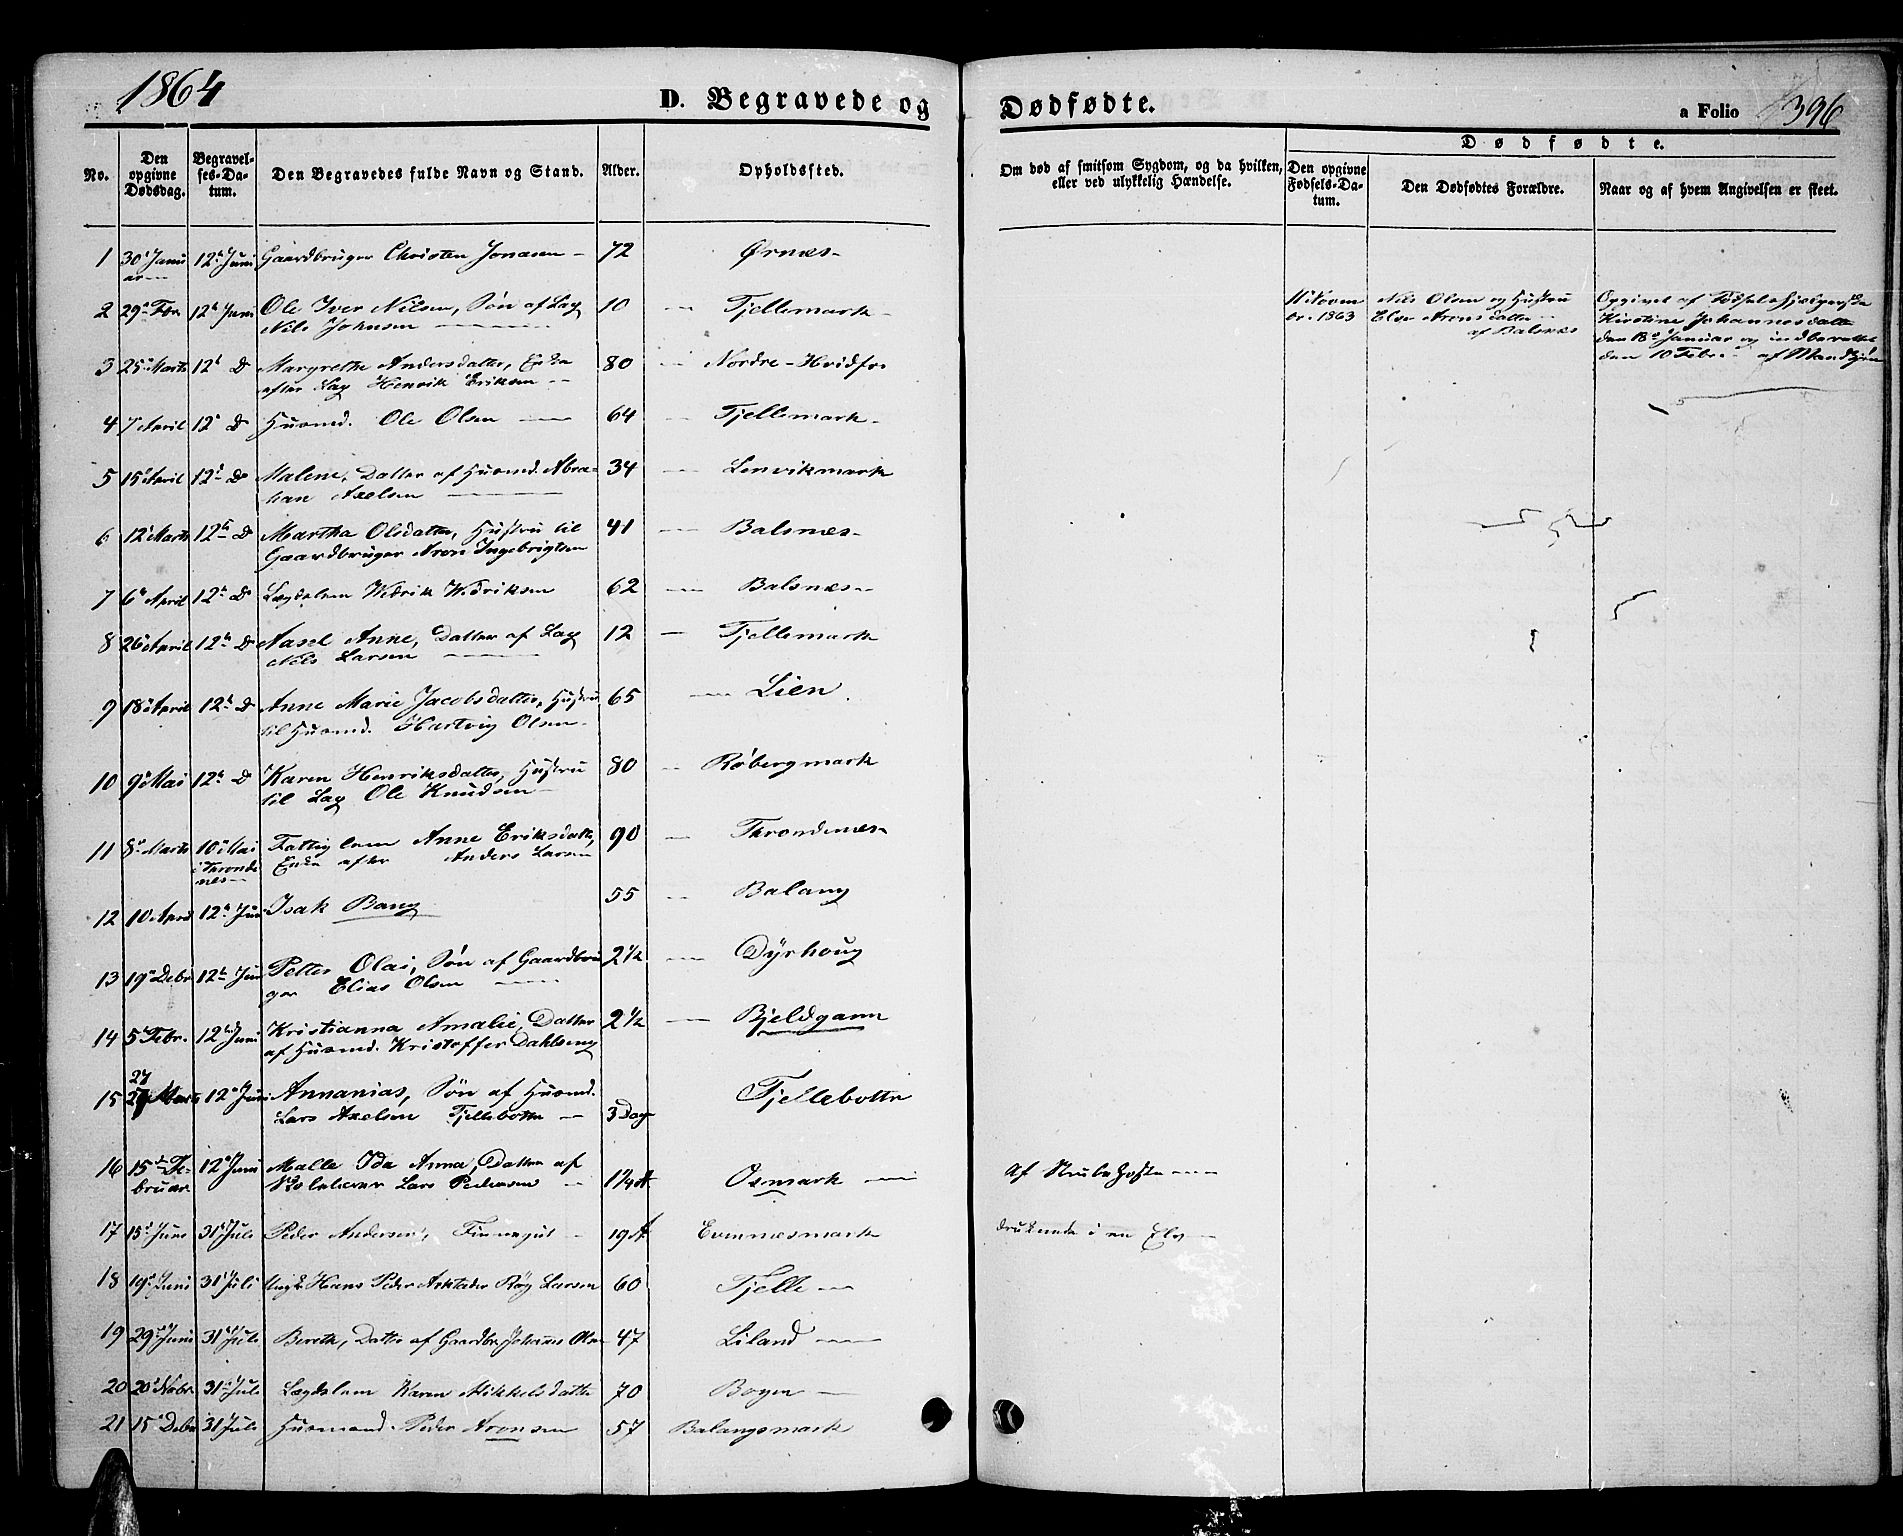 1864
D. Begravede og Dødfødte.
a Folio 396
No.
Den opgivne Dødsdag.
Begravelses-Datum.
Den Begravedes fulde Navn og Stand.
Alder.
Opholdssted.
Om død af smitsom Sygdom, og da hvilken, eller ved ulykkelig Hændelse.
Dødfødte.
Den opgivne Fødsels-Datum.
Den Dødfødtes Forældre.
Naar og af hvem Angivelsen er skeet.
1 30 Januar 12 Juni Gaardbruger Christen Jonasen 72 Ørnæs
2 29 Febr 12 Juni Ole Iver Nilsen, Søn af Læg
Nils Johnsen 10 Fjellemark
11 Novembr. 1863 Nils Olsen og Hustru
Elen Aronsdatter
af Balsnæs
Opgivet af Fødselshjælperske
Kirstine Johannesdatter
den 18 Januar og indberettet
den 10 Febr. af
3 25 Marts 12 D Margrethe Andersdatter, Enke
efter Læg Henrik Eriksen 80 Nordre-Hvidfor
4 7 April 12 D Husmd. Ole Olsen 64 Fjellemark
5 15 April 12 D Malene, Datter af Husmd. Abra-
ham Axelsen 34 Lenvikmark
6 12 Marts 12 D Martha Olsdatter, Hustru til
Gaardbruger Aron Ingebrigtsen 41 Balsnæs
7 6 April 12 D Lægdslem Wedrik Wedriksen 62 Balsnæs
8 26 April 12 D Aasel Anne, Datter af Læg
Nils Larsen 12 Fjellemark
9 18 April 12 D Anne Marie Jacobsdatter, Hustru
til Husmd. Hartvig Olsen 65 Lien
10 9 Mai 12 D Karen Henriksdatter, Hustru
til Læg Ole Knudsen 80 Røbergmark
11 8 Marts 10 Mai i Throndenes Fattiglem Anne Eriksdatter,
Enke efter Anders Larsen 90 Throndenes
12 10 April 12 Juni Isak Bang 55 Balang
13 19 Debr 12 Juni Petter Olai, Søn af Gaardbru
ger Elias Olsen 2 1/2 Dyrhoug
14 5 Febr. 12 Juni Kristianna Amalie, Datter
af Husmd. Kristoffer Dahlseng 2 1/2 Bjeldgam
15 27 Marts 12 Juni Annanias, Søn af Husmd.
Lars Axelsen Fjellebotten 3 Dag Fjellebotten
16 15 Februar 12 Juni Malle Ida Anna, Datter af
Lars Pedersen 1 1/4 A Osmark Af Strubehoste
17 15 Juni 31 Juli Peder Andersen, Finnegut 19 A Evenæsmark druknede i en Elv
18 19 Juni 31 Juli Ungk Hans Peder Røg Larsen 60 Fjelle
19 29 Juni 31 Juli Bereth, Datter af Gaardbr. Johannes Olsen 47 Liland
20 20 Nobr. 31 Juli Lægdslem Karen Mikkelsdatter 70 Bogen
21 15 Debr 31 Juli Husmand Peder Aronsen 57 Balangsmark